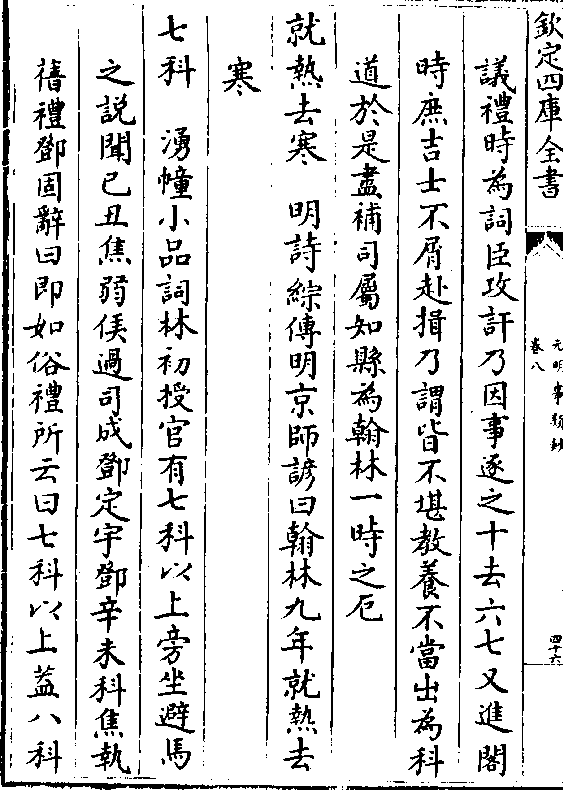 欽定四庫全書
元明事類鈔
卷八
四十六
議禮時為詞臣攻訐乃因事逐之十去六七又進閣
時庶吉士不屑赴揖乃謂皆不堪教養不當出為科
道於是盡補司屬知縣為翰林一時之厄
就熱去寒　明詩綜傳明京師諺曰翰林九年就熱去
寒
七科　湧幢小品詞林初授官有七科以上旁坐避馬
之説聞已丑焦弱侯過司成鄧定宇鄧辛未科焦執
舊禮鄧固辭曰即如俗禮所云曰七科以上蓋八科